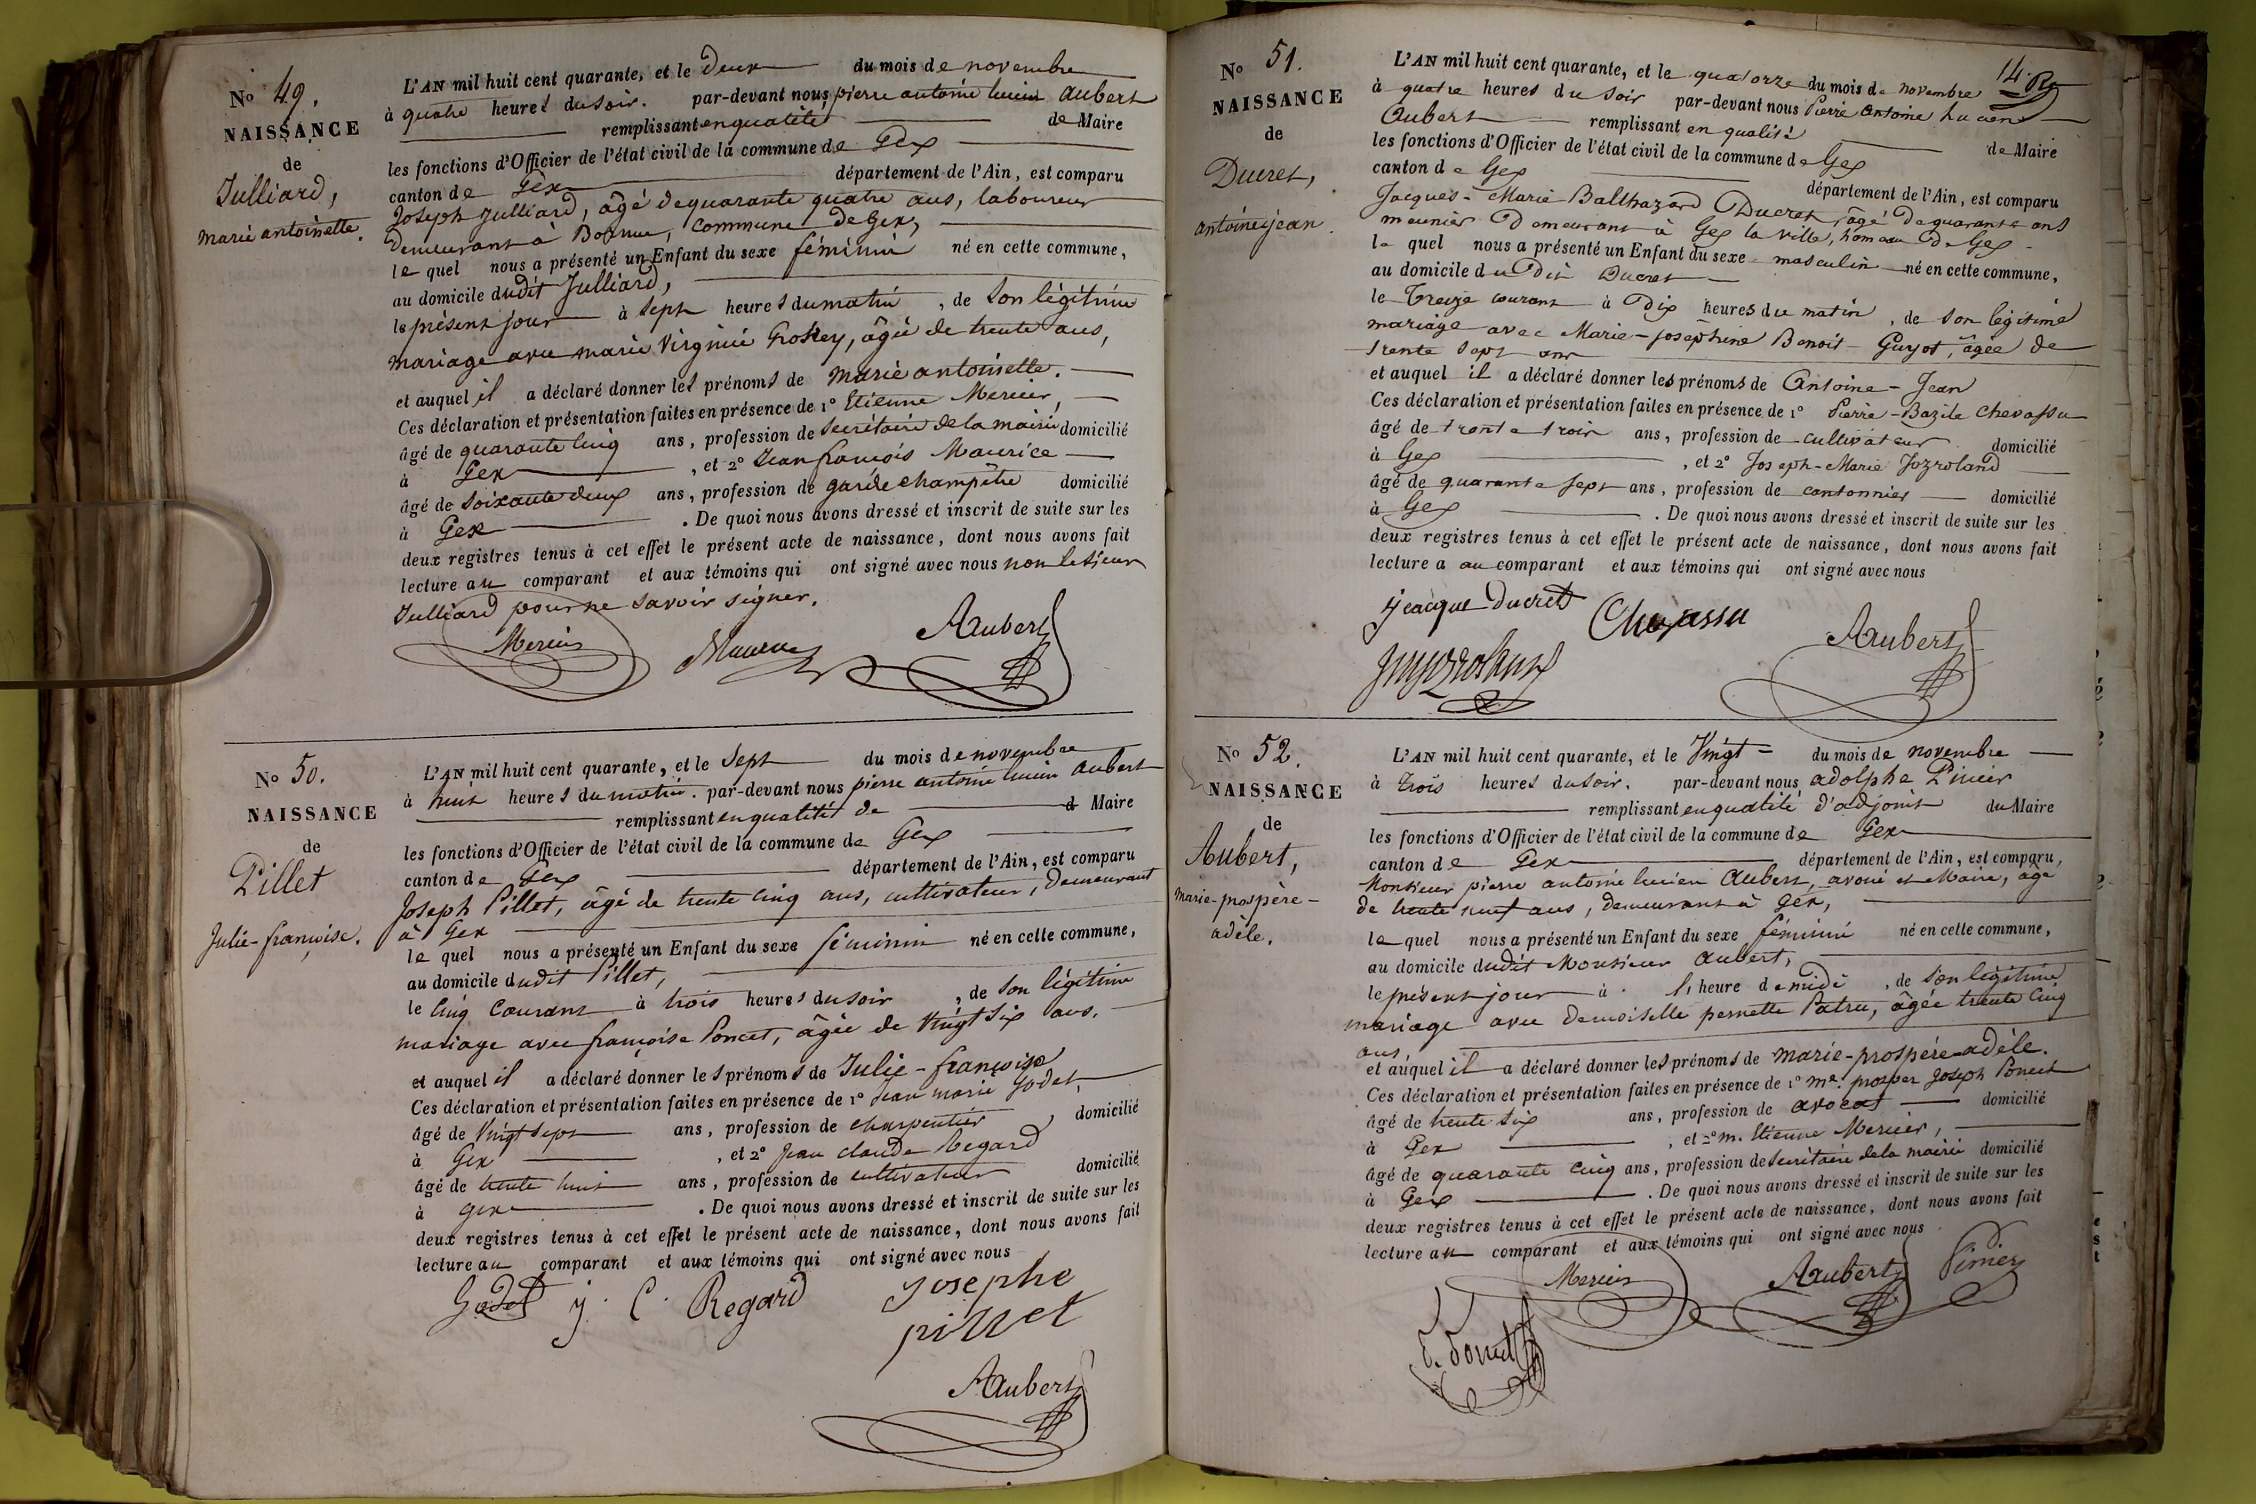 N° 49.
NAISSANCE
de
Julliard,
marie antoinette.
L'AN mil huit cent quarante, et le deux du mois de novembre
à quatre heures du soir. par-devant nous, pierre antoine lucien Aubert
remplissant en qualité de Maire
les fonctions d'Officier de l'état civil de la commune de Gex
canton de Gex département de l'Ain, est comparu
Joseph Julliard, âgé de quarante quatre ans, laboureur
demeurant à commune de Gex,
le quel nous a présenté un Enfant du sexe féminin né en cette commune,
au domicile dudit Julliard,
le présent jour à sept heures du matin, de son légitime
mariage avec marie Virginie âgée de trente ans,
et auquel il a déclaré donner les prénoms de marie antoinette.
Ces déclaration et présentation faites en présence de 1° Etienne Mercier,
âgé de quarante cinq ans, profession de secrétaire de la mairie domicilié
à Gex, et 2° Jean françois Maurice
âgé de soixante deux ans, profession de garde champêtre domicilié
à Gex. De quoi nous avons dressé et inscrit de suite sur les
deux registres tenus à cet effet le présent acte de naissance, dont nous avons fait
lecture au comparant et aux témoins qui ont signé avec nous non le sieur
Julliard pour ne savoir signer.
Mercier Maurice Aubert
N° 50.
NAISSANCE
de
Pillet
Julie-françoise.
L'AN mil huit cent quarante, et le sept du mois de novembre
à huit heures du matin. par-devant nous pierre antoine lucien Aubert
remplissant en qualité de d Maire
les fonctions d'Officier de l'état civil de la commune de Gex
canton de Gex département de l'Ain, est comparu
Joseph Pillet, âgé de trente cinq ans, cultivateur, demeurant
à Gex
le quel nous a présenté un Enfant du sexe féminin né en cette commune,
au domicile dudit Pillet,
le cinq courant à trois heures du soir, de son légitime
mariage avec françoise Poncet, âgée de vingt six ans.
et auquel il a déclaré donner les prénoms de Julie-françoise
Ces déclaration et présentation faites en présence de 1° Jean marie Godet,
âgé de vingt sept ans, profession de charpentier, domicilié
à Gex, et 2° Jean claude Regard
âgé de trente huit ans, profession de cultivateur domicilié
à Gex. De quoi nous avons dressé et inscrit de suite sur les
deux registres tenus à cet effet le présent acte de naissance, dont nous avons fait
lecture au comparant et aux témoins qui ont signé avec nous
Godet j. C. Regard Josephe
pillet
Aubert
14
N° 51.
NAISSANCE
de
Ducret,
antoine jean.
L'AN mil huit cent quarante, et le quatorze du mois de novembre
à quatre heures du soir par-devant nous Pierre Antoine Lucien
Aubert remplissant en qualité de Maire
les fonctions d'Officier de l'état civil de la commune de Gex
canton de Gex département de l'Ain, est comparu
Jacques-Marie Balthazard Ducret, âgé de quarante ans
meunier demeurant à Gex la ville, hameau de Gex
le quel nous a présenté un Enfant du sexe masculin né en cette commune,
au domicile du dit Ducret
le treize courant à dix heures du matin, de son légitime
mariage avec Marie-josephine Benoit-Guyot, âgée de
trente sept ans
et auquel il a déclaré donner les prénoms de Antoine-Jean
Ces déclaration et présentation faites en présence de 1° Pierre-Bazile Chevassu
âgé de trente trois ans, profession de cultivateur domicilié
à Gex, et 2° Joseph-Marie
âgé de quarante sept ans, profession de cantonnier domicilié
à Gex. De quoi nous avons dressé et inscrit de suite sur les
deux registres tenus à cet effet le présent acte de naissance, dont nous avons fait
lecture a au comparant et aux témoins qui ont signé avec nous
jeacque Ducret Chevassu
Aubert
N° 52.
NAISSANCE
de
Aubert,
marie-prospère-
adèle.
L'AN mil huit cent quarante, et le Vingt du mois de novembre
à trois heures du soir. par-devant nous, adolphe
remplissant en qualité d'adjoint du Maire
les fonctions d'Officier de l'état civil de la commune de Gex
canton de Gex département de l'Ain, est comparu,
Monsieur pierre antoine lucien Aubert, avoué et Maire, âgé
de trente neuf ans, demeurant à Gex,
le quel nous a présenté un Enfant du sexe féminin né en cette commune,
au domicile dudit Monsieur Aubert,
le présent jour à l'heure de midi, de son légitime
mariage avec demoiselle pernette Patru, âgée trente cinq
ans,
et auquel il a déclaré donner les prénoms de marie-prospère-adèle.
Ces déclaration et présentation faites en présence de 1° me. prosper Joseph Poncet
âgé de trente six ans, profession de avocat domicilié
à Gex, et 2° m. Etienne Mercier,
âgé de quarante cinq ans, profession de secrétaire de la mairie domicilié
à Gex. De quoi nous avons dressé et inscrit de suite sur les
deux registres tenus à cet effet le présent acte de naissance, dont nous avons fait
lecture au comparant et aux témoins qui ont signé avec nous
Mercier Aubert